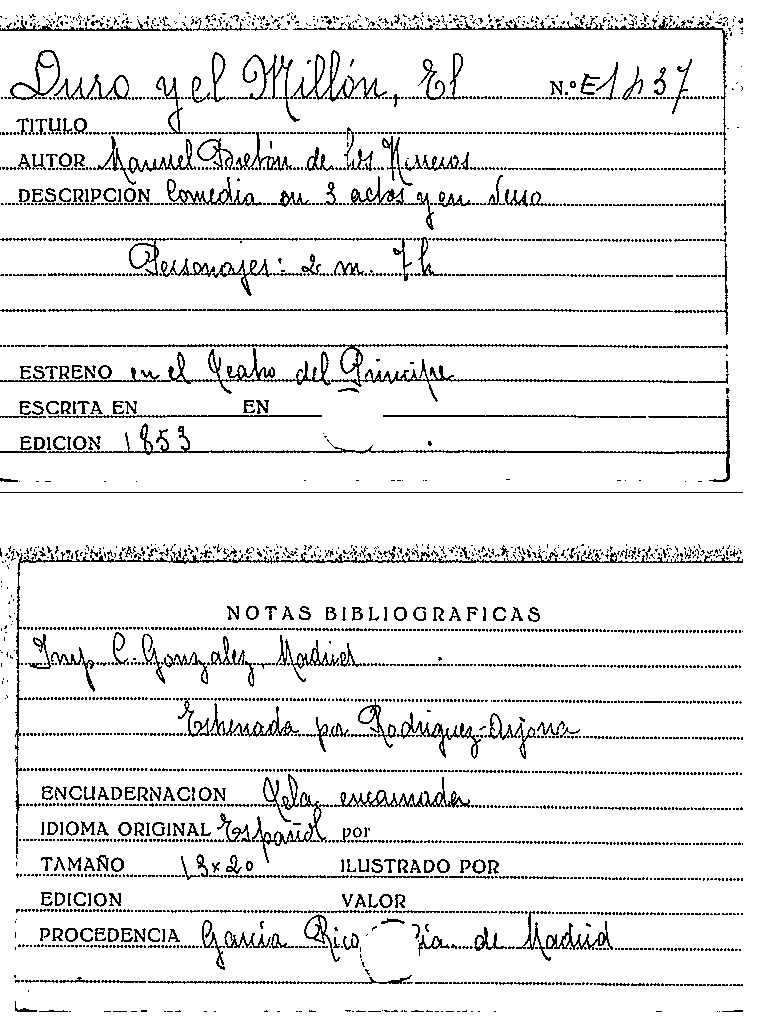 Duro y el Millón, El N.º E1437
TITULO
AUTOR Manuel Bretón de los Herreros
DESCRIPCIÓN Comedia en 3 actos y en verso
Personajes: 2 m. 7 h
ESTRENO en el Teatro del Principe
ESCRITA EN EN
EDICION 1853
NOTAS BIBLIOGRAFICAS
Imp C. Gonzalez, Madrid
Estrenada por Rodriguez-Arjona
ENCUADERNACION Tela encarnada
IDIOMA ORIGINAL Español por
TAMAÑO 13x20 ILUSTRADO POR
EDICION VALOR
PROCEDENCIA García Rico de Madrid